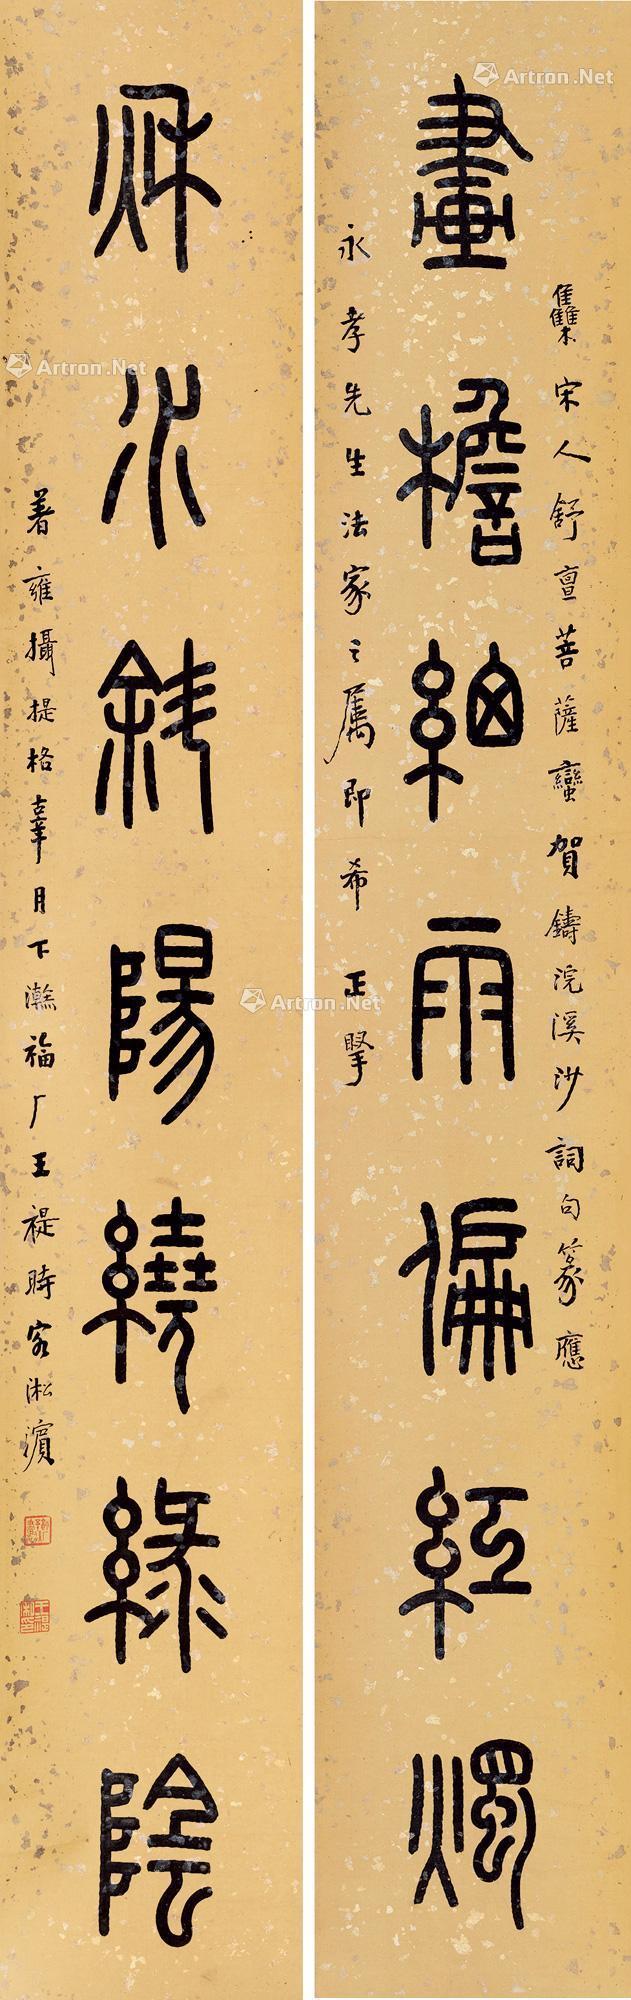 畫檐細雨偏紅燭
集宋人舒亶菩薩蠻賀鑄浣溪沙詞句篆應
永孝先生法家之屬即希正擘
秌水斜陽繞綠陰
著雍攝提格辜月下澣福厂王禔時客淞濱
Artron.Net
Artron.Net
Artron.Net
Artron.Net